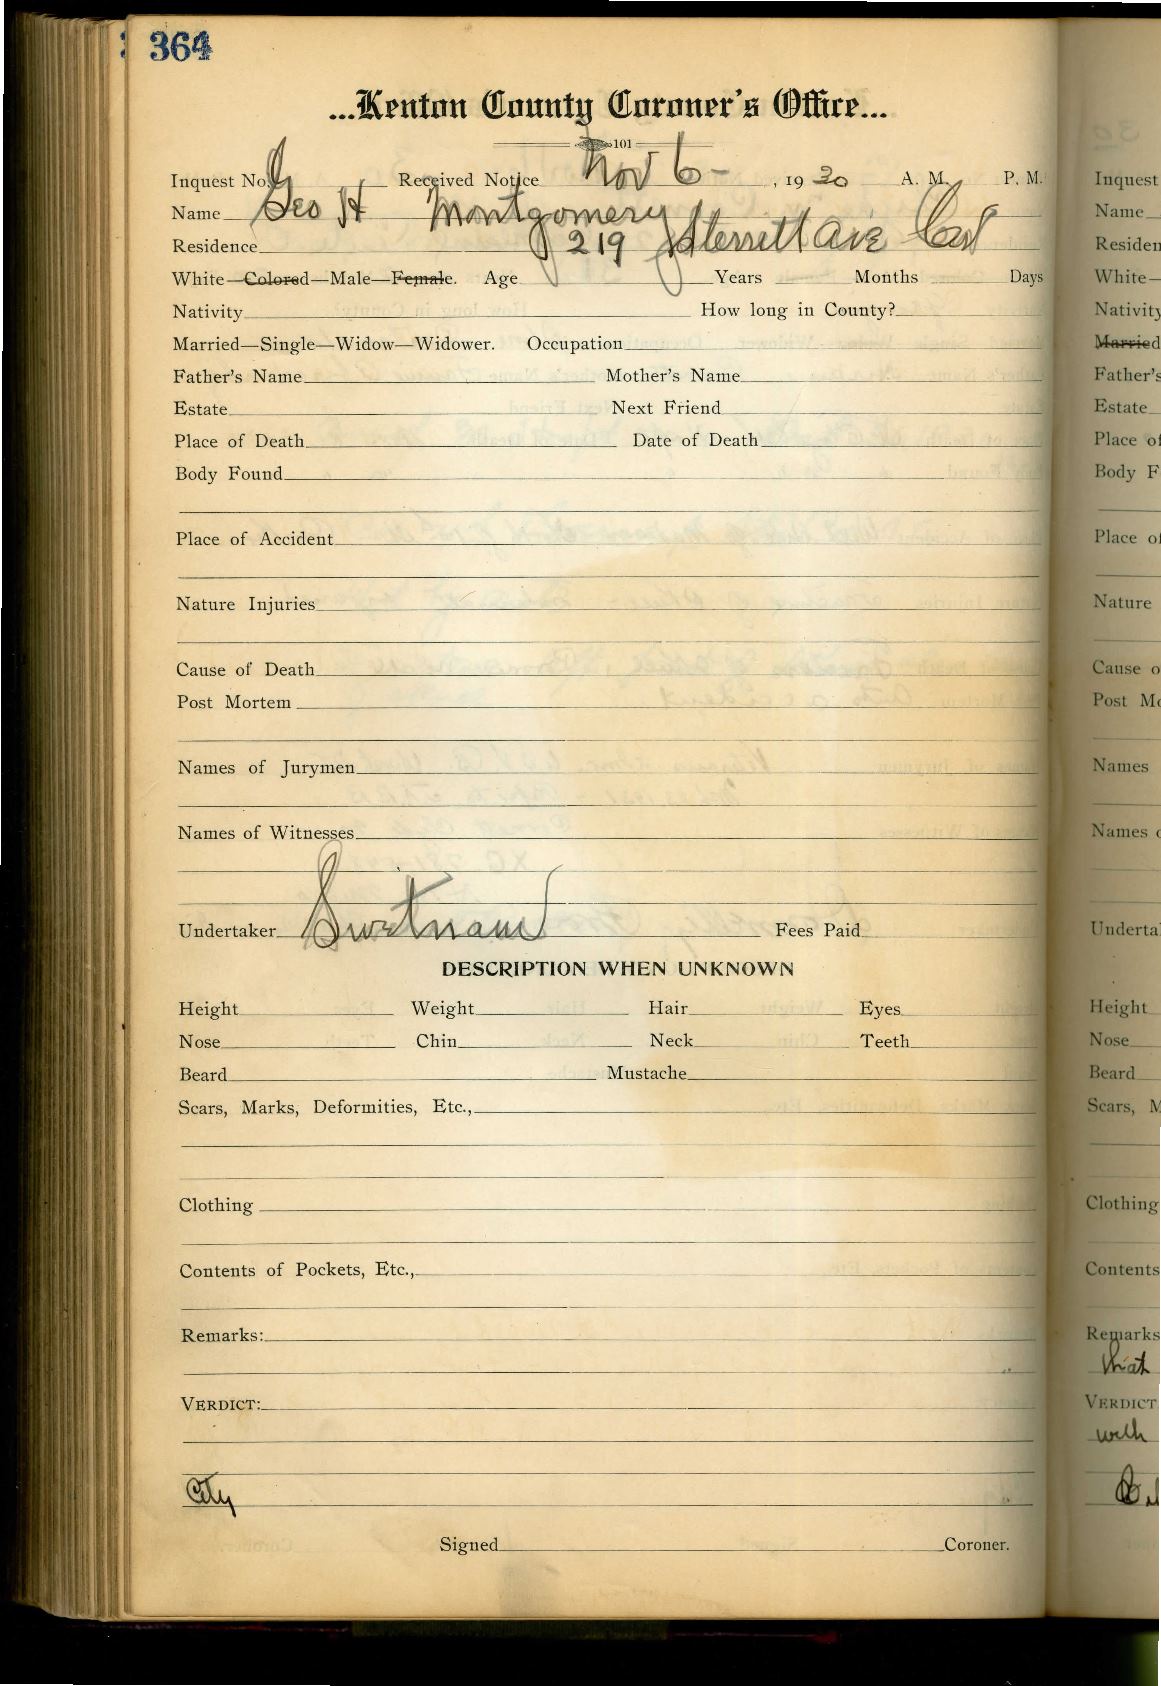 364
...Kenton County Coroner's Office...
101
Inquest No. Received Notice Nov 6- , 1930 A. M. P. M.
Name Geo H Montgomery
Residence 219 Sterrett Ave Cov
White—Colored—Male—Female. Age Years Months Days
Nativity How long in County?
Married—Single—Widow—Widower. Occupation
Father's Name Mother's Name
Estate Next Friend
Place of Death Date of Death
Body Found
Place of Accident
Nature Injuries
Cause of Death
Post Mortem
Names of Jurymen
Names of Witnesses
Undertaker Swetnam Fees Paid
DESCRIPTION WHEN UNKNOWN
Height Weight Hair Eyes
Nose Chin Neck Teeth
Beard Mustache
Scars, Marks, Deformities, Etc.,
Clothing
Contents of Pockets, Etc.,
Remarks:
VERDICT:
City
Signed Coroner.
Inquest
Name
Residen
White—
Nativity
Married
Father's
Estate
Place of
Body F
Place of
Nature
Cause o
Post Mo
Names
Names o
Underta
Height
Nose
Beard
Scars, M
Clothing
Contents
Remarks
that
VERDICT
with